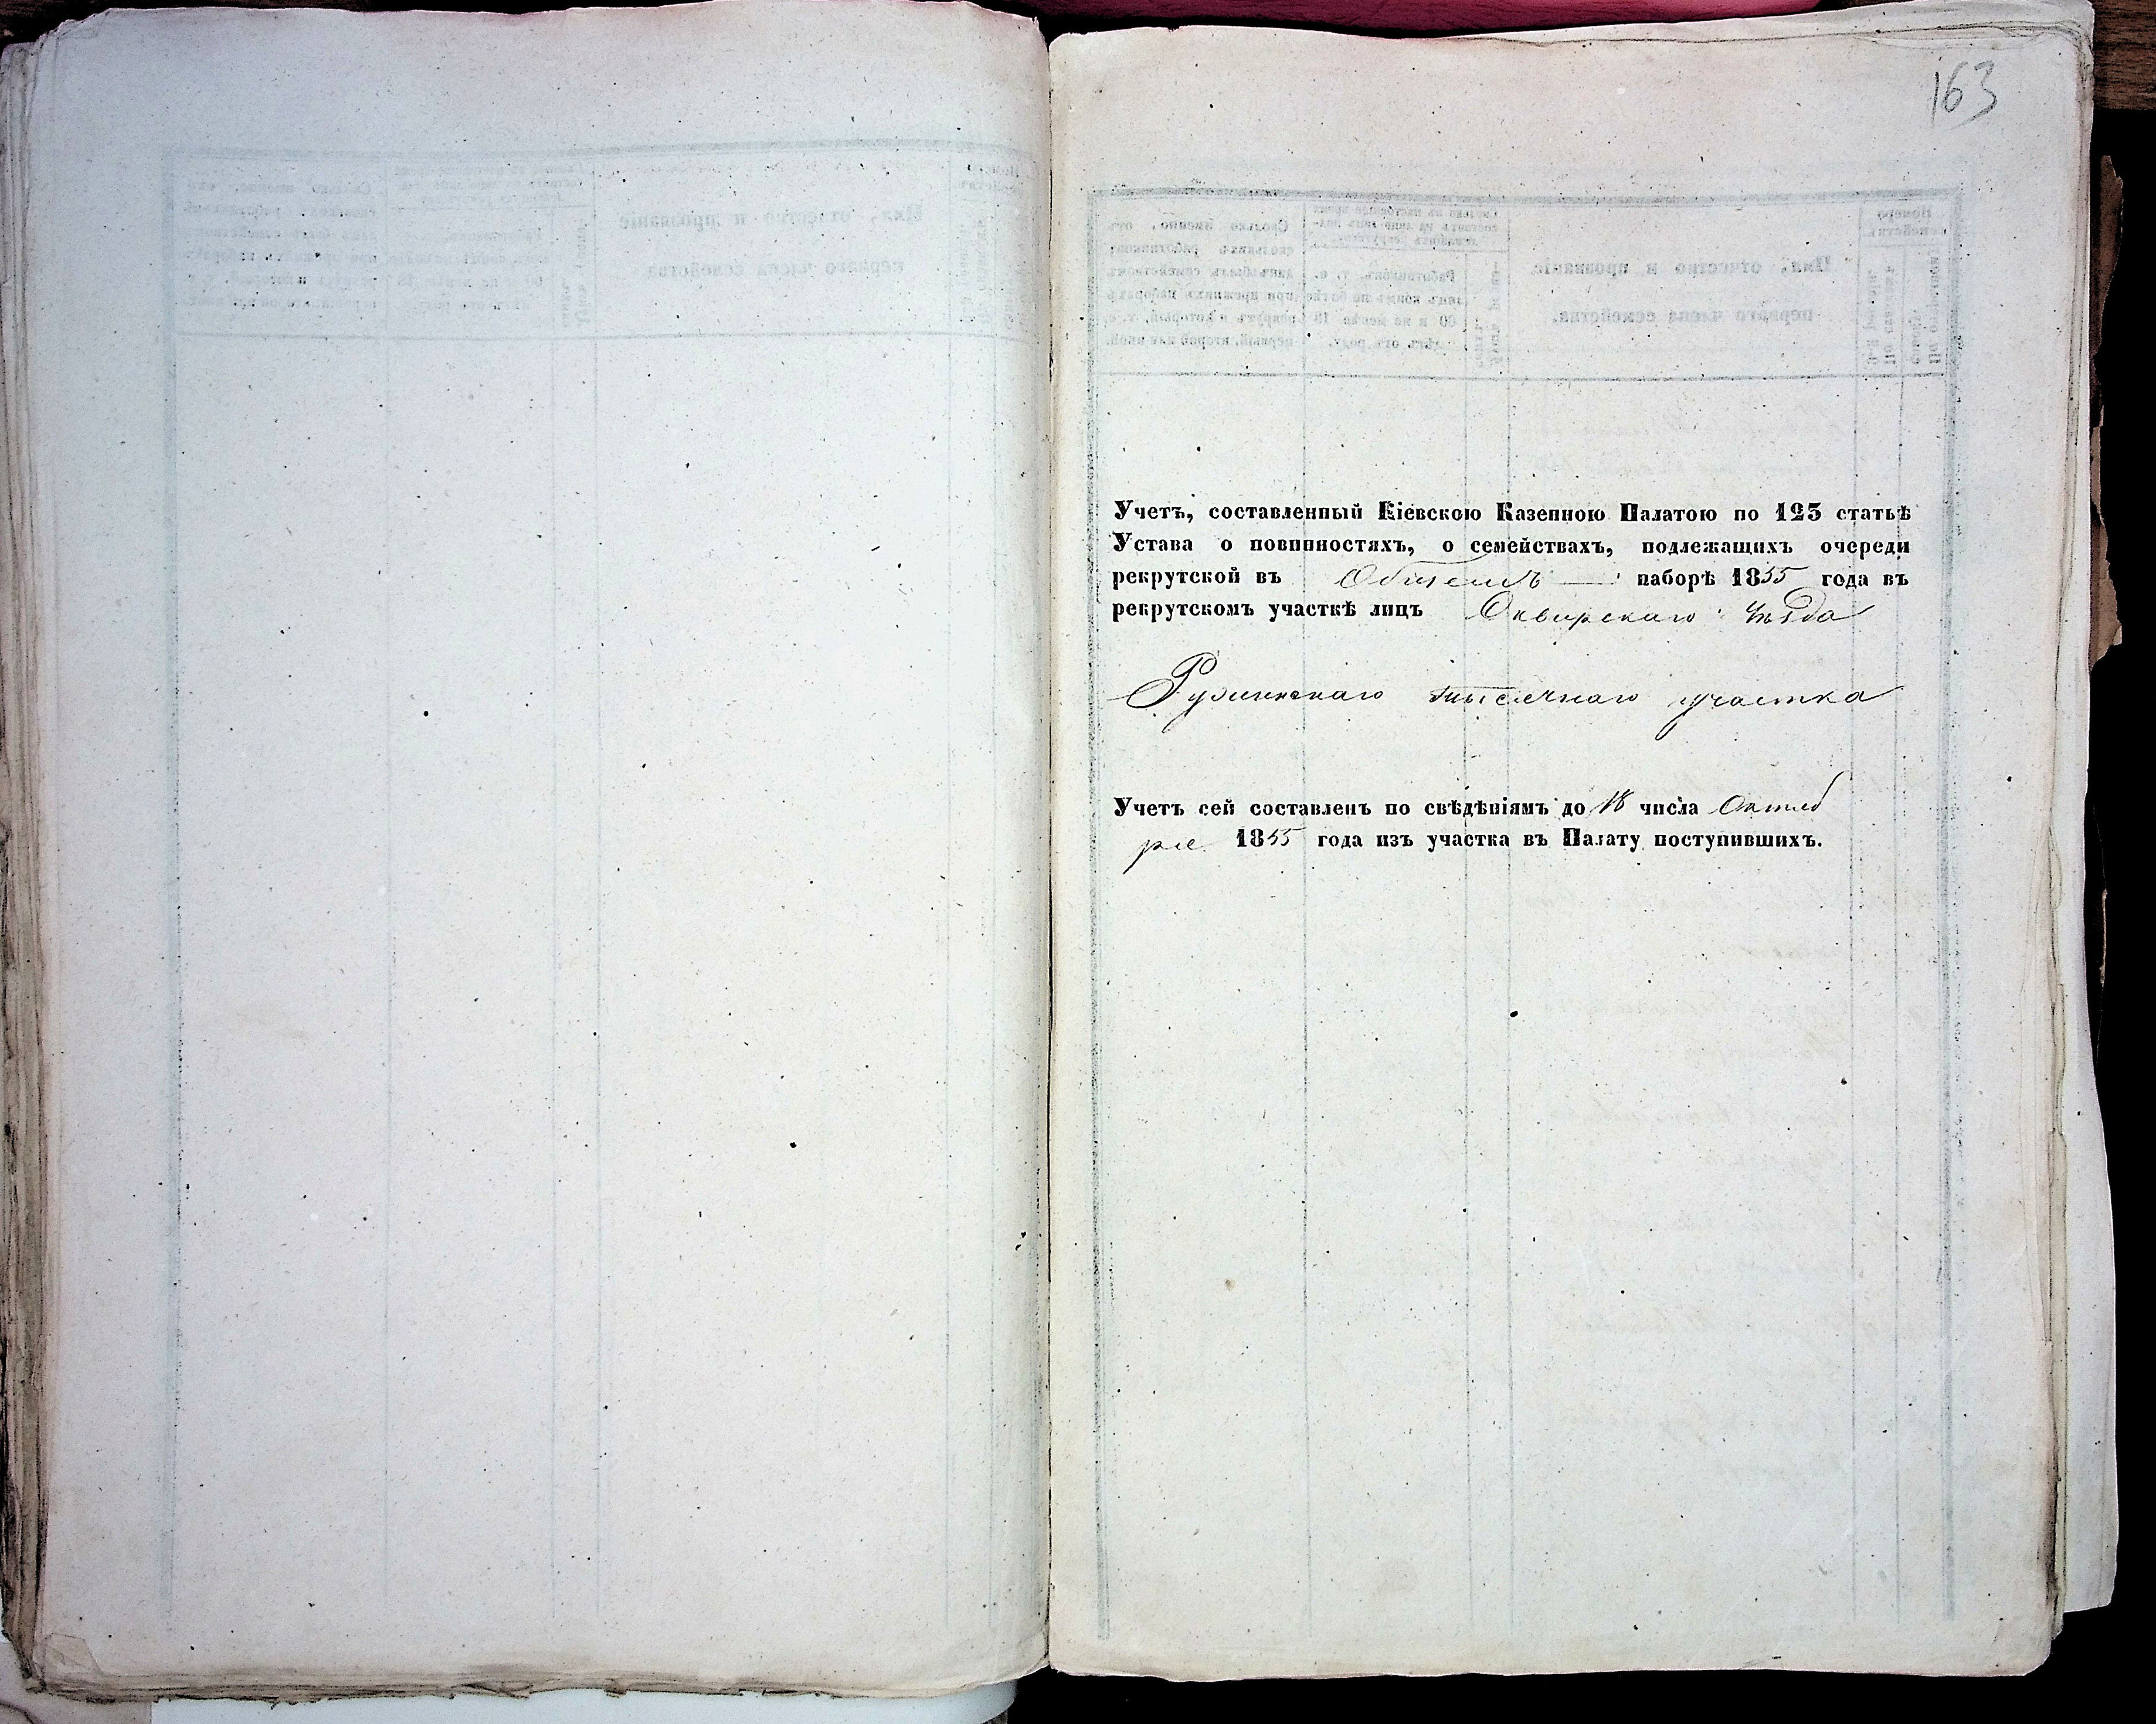 163
Учетъ, составленный Кіевскою Казенною Палатою по 123 статьѣ
Устава о повинностяхъ, о семействахъ, подлежащихъ очереди
рекрутской въ Общемъ наборѣ 1855 года въ
рекрутскомъ участкѣ лицъ Сквирскаго уѣзда
Ружинскаго тысячнаго участка
Учетъ сей составленъ по свѣдѣніямъ до 18 числа Октяб
ря 1855 года изъ участка въ Палату поступившихъ.